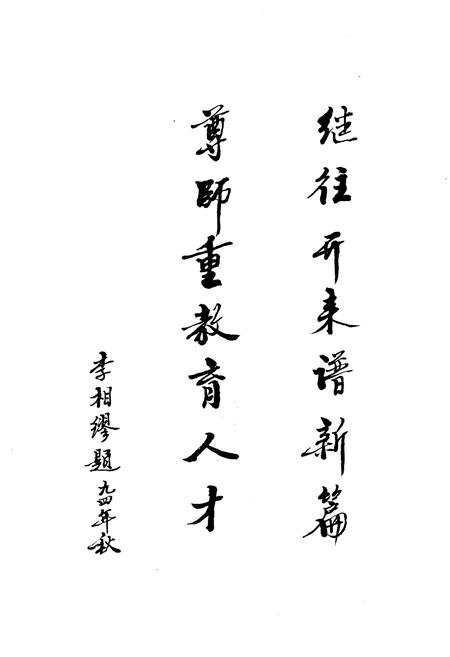 继往开来谱新篇
尊師重教育人才
李相缪題九四年秋